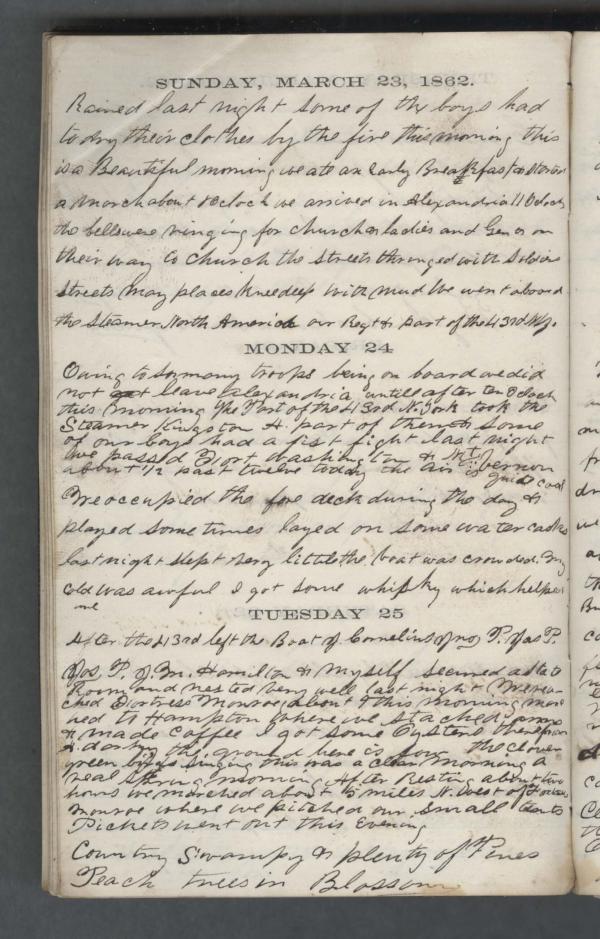 SUNDAY, MARCH 23, 1862.
Rained last night some of the boys had
to dry their clothes by the fire this morning this
is a Beautiful morning we ate an Early Breakfast &
a march about o clock we arrived in Alexandria 11 Oclock
the bells were ringing for church & ladies and Gen on
their way to church the streets thronged with Soldiers
streets may places kneedeep with mud We went aboard
the Steamer North America our Regt & part of the 43rd N.Y.
MONDAY 24
Owing to so many troops being on board we did
not leave Alexandria untill after ten Oclock
this morning The Part of the 43rd N. York took the
Steamer Kingston & part of them some
of our boys had a fist fight last night
We passed Fort Washington & Mt Vernon
about 1/2 past twelve today the air is quite cool
We occupied the fore deck during the day &
played some times layed on some water casks
last night slept very little the boat was crowded. My
cold was awful I got some whisky which helped
me
TUESDAY 25
After the 43rd left the Boat J. Cornelius P. Jas P.
Jos. P. J. M. Hamilton & myself secured a State
Room and rested very well last night We rea-
ched Fortress Monroe about this morning mar
ched to Hampton where we stacked arms
& made Coffee I got some Oysters there
the ground here is low the clover
green birds singing this was a clear morning a
real spring morning After Resting about two
hours we marched about miles N. West of Fortress
Monroe where we pitched our small tents
Pickets went out this Evening
Country Swampy & plenty of Pines
Peach trees in Blossom